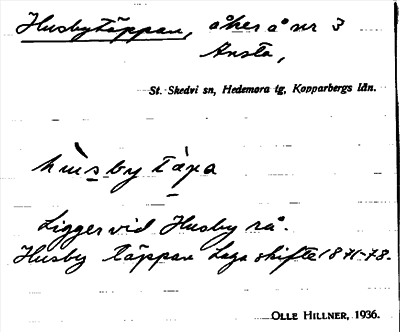 Husbytäppan, åker å nr 3
Ansta,
St. Skedvi sn, Hedemora tg, Kopparbergs län.
hùsby täpa
Ligger vid Husby rå.
Husby täppan Laga skifte 1871-78.
OLLE HILLNER, 1936.